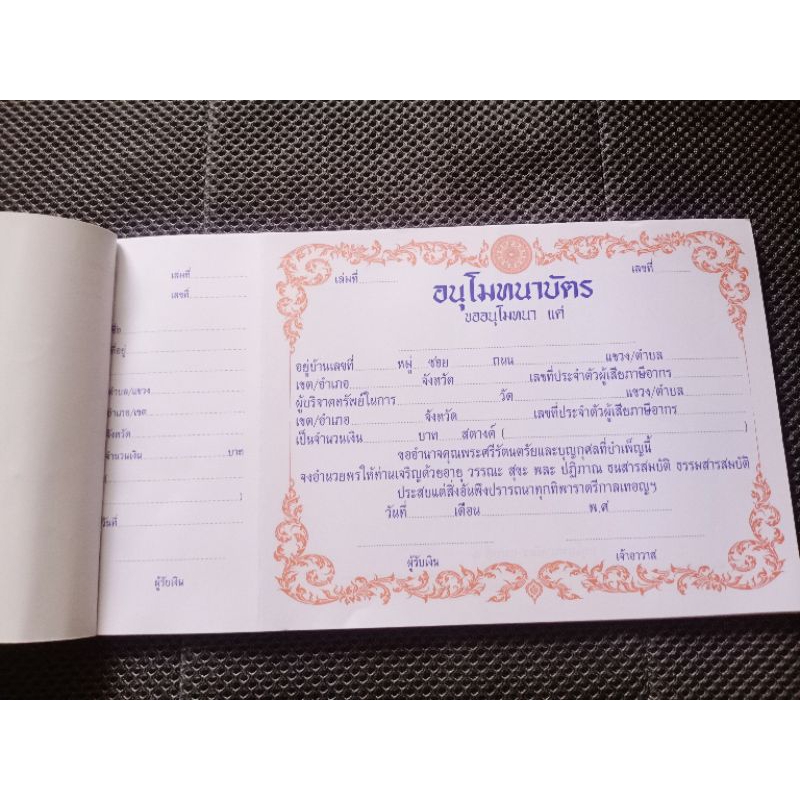 เล่มที่
เลขที่
ที่อยู่
ตำบล/แขวง
อำเภอ/เขต
จังหวัด
จำนวนเงิน บาท
( )
วันที่
ผู้รับเงิน
เล่มที่ เลขที่
อนุโมทนาบัตร
ขออนุโมทนา แด่
อยู่บ้านเลขที่ หมู่ ซ่อย ถนน แขวง/ตำบล
เขต/อำเภอ จังหวัด เลขที่ประจำตัวผู้เสียภาษีอากร
ผู้บริจาตทรัพย์ในการ วัด แขวง/ตำบล
เขต/อำเภอ จังหวัด เลขที่ประจำตัวผู้เสียภาษีอากร
เป็นจำนวนเงิน บาท สตางค์ ( )
ขออำนาจคุณพระศรีรัตนตรัยและบุญกุศลที่บำเพ็ญนี้
จงอำนวยพรให้ท่านเจริญด้วยอายุ วรรณะ สุขะ พละ ปฏิภาณ ธนสารสมบัติ ธรรมสารสมบัติ
ประสบแต่สิ่งอันพึงปรารถนาทุกทิพาราตรีกาลเทอญฯ
วันที่ เดือน พ.ศ
ผู้รับเงิน เจ้าอาวาส